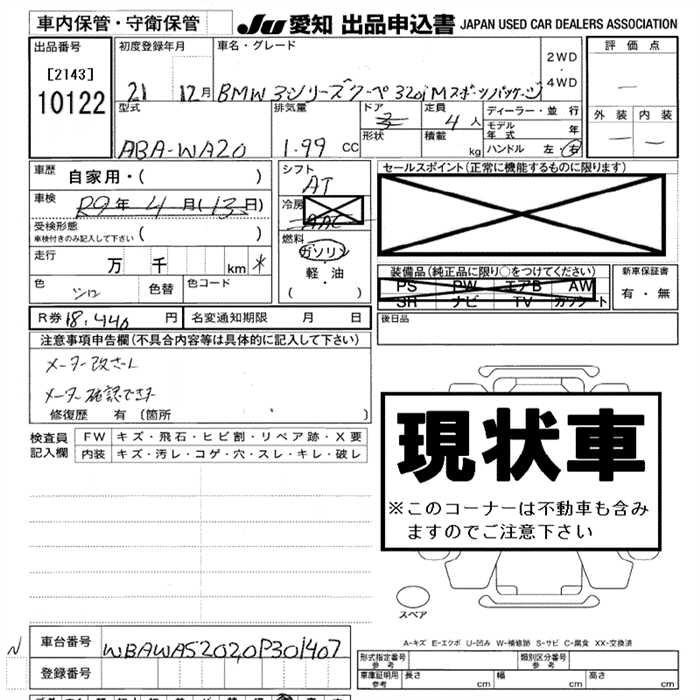 車内保管・守衛保管 JU 愛知 出品申込書 JAPAN USED CAR DEALERS ASSOCIATION
出品番号 初度登録年月 車名・グレード 2WD・4WD 評価点
[2143] 10122 21 12月 BMW 3シリーズクーペ 320i Mスポーツパッケージ －
型式 排気量 ドア 定員 ディーラー・並行 外装 内装
ABA-WA20 1.99 CC 3 4人 モデル年式 年 － －
形状 積載 kg ハンドル 左・右
車歴 自家用・( ) シフト AT セールスポイント(正常に機能するものに限ります)
車検 R9年4月(13日) 冷房 AAC
受検形態 ( )
車検付きのみ記入して下さい
燃料 ガソリン・軽・油 ( )
走行 万 千 km * 装備品(純品に限り○をつけてください) 新車保証書
PS PW エアB AW 有・無
SR ナビ TV カワシート
色 シロ 色替 色コード
R券 18,440 円 名変通知期限 月 日 後日品
注意事項申告欄(不具合内容等は具体的に記入して下さい)
メーター改ざん
メーター確認できず
修復歴 有(箇所 )
検査員記入欄 FW キズ・飛石・ヒビ割・リペア跡・X要
内装 キズ・汚レ・コゲ・穴・スレ・キレ・破レ
現状車
※このコーナーは不動車も含み
ますのでご注意下さい
スペア
A-キズ E-エクボ U-凹み W-補修跡 S-サビ C-腐食 XX-交換済
N 車台番号 WBAWA52020P301407
登録番号
形式指定番号 参考 類別区分番号 参考
車庫証明用 参考 長さ cm 幅 cm 高さ cm